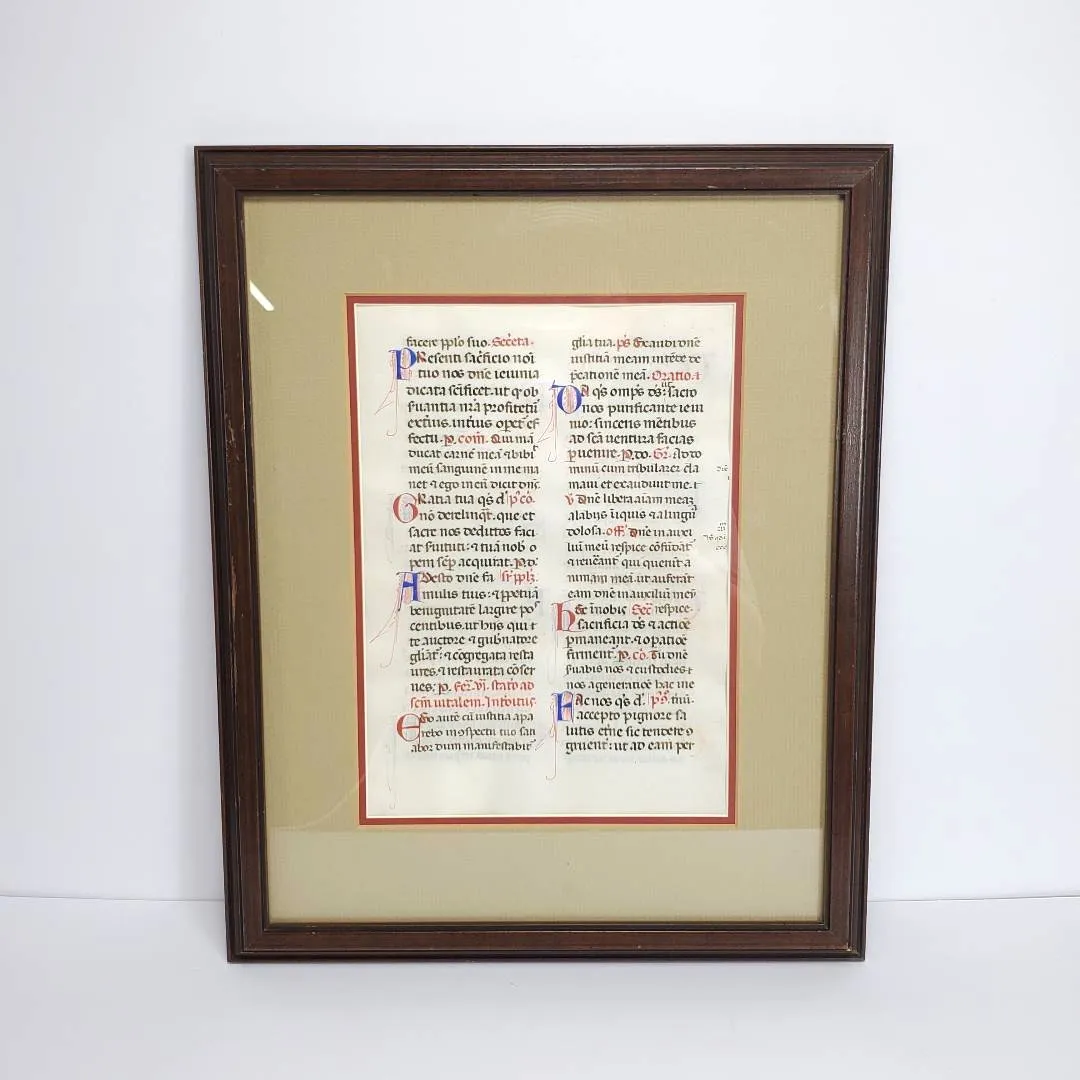 facere pplo suo. Secreta.
PResenti sacrificio noi
tuo nos dne ieiunia
dicata scificet. ut q ob
suantia nra profitetur
exterius. intius operet ef
fectu. P. com. Qui man
ducat carne mea & bibit
meu sanguine in me ma
net & ego in eu dicit dns.
GRatia tua qs d. p co.
no derelinqt. que et
sacre nos deditos faci
at suituti: & tua nob o
pem sep acquirat. P. d.
ADesto dne fa sr pplm.
mulis tuis: & ppetua
benignitate largire pos
centibus. ut hiis qui te
te auctore & gubnatore
gliat: & cogregata resta
ures. & restaurata coser
nes: P. fer. vi. statio ad
scm uitalem. Introitus
EGo aute cu iusticia apa
rebo in 9spectu tuo sati
abor dum manifestabit
glia tua. ps Exaudi dne
iusticia meam intede de
pcatione mea. Oratio.
DA qs omps ds: sacro
nos purificante ieiu
nio: sinceris metibus
ad sca uentura facias
puenire. P. do. Gr. Ad do
minu cum tribularer cla
maui et exaudiuit me. t
v dne libera aiam mea
alabiis iniquis & a lingu
dolosa. off. dne in auxi
liu meu respice cofudat
& reueant qui querut a
nimam mea. ut auferat
eam dne in auxilium meu
hec i nobis Sec respice.
sacrificia ds & actioe
pmaneant. & opatioe
firment. P. co. Tu dne
suabis nos & custodies
nos a generatioe hac in e
FAc nos qs d. ps. tnu.
accepto pignore sa
lutis etne sic tendere 9
gruent: ut ad eam per